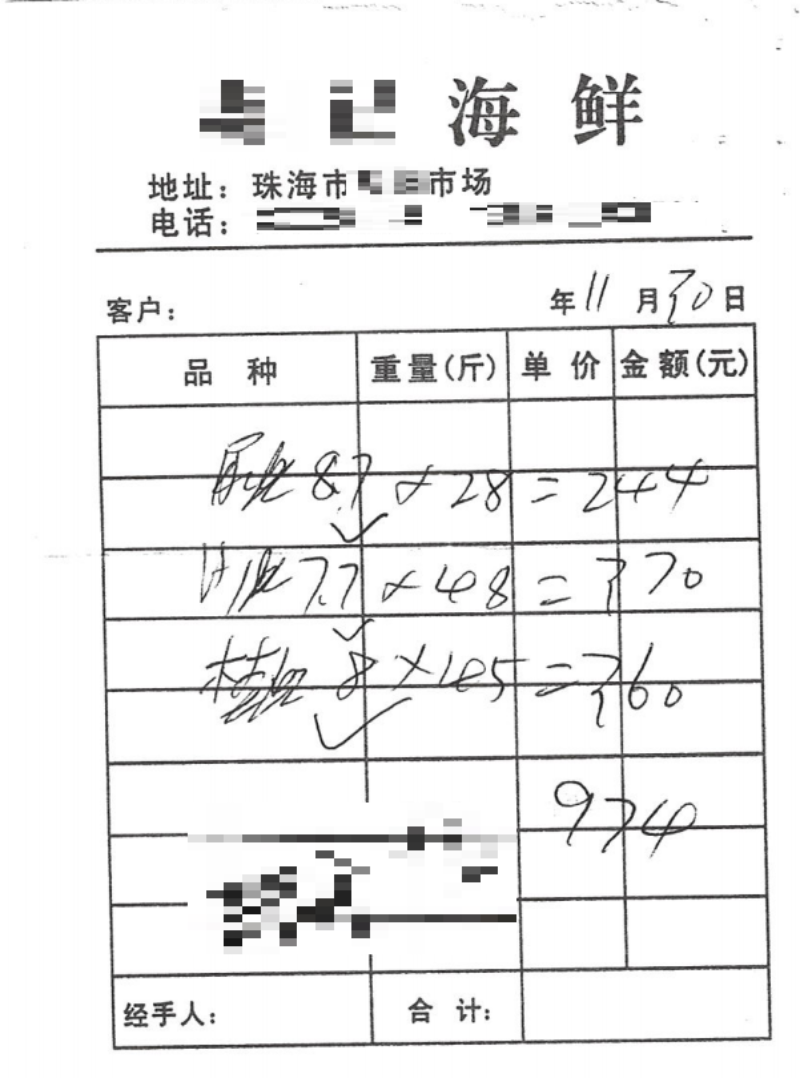 海鲜
地址：珠海市 市场
电话：
客户： 年11月30日
品种 重量(斤) 单价 金额(元)
8.7 × 28 = 244
7.7 × 48 = 370
桂 8 × 45 = 360
974
经手人： 合计：